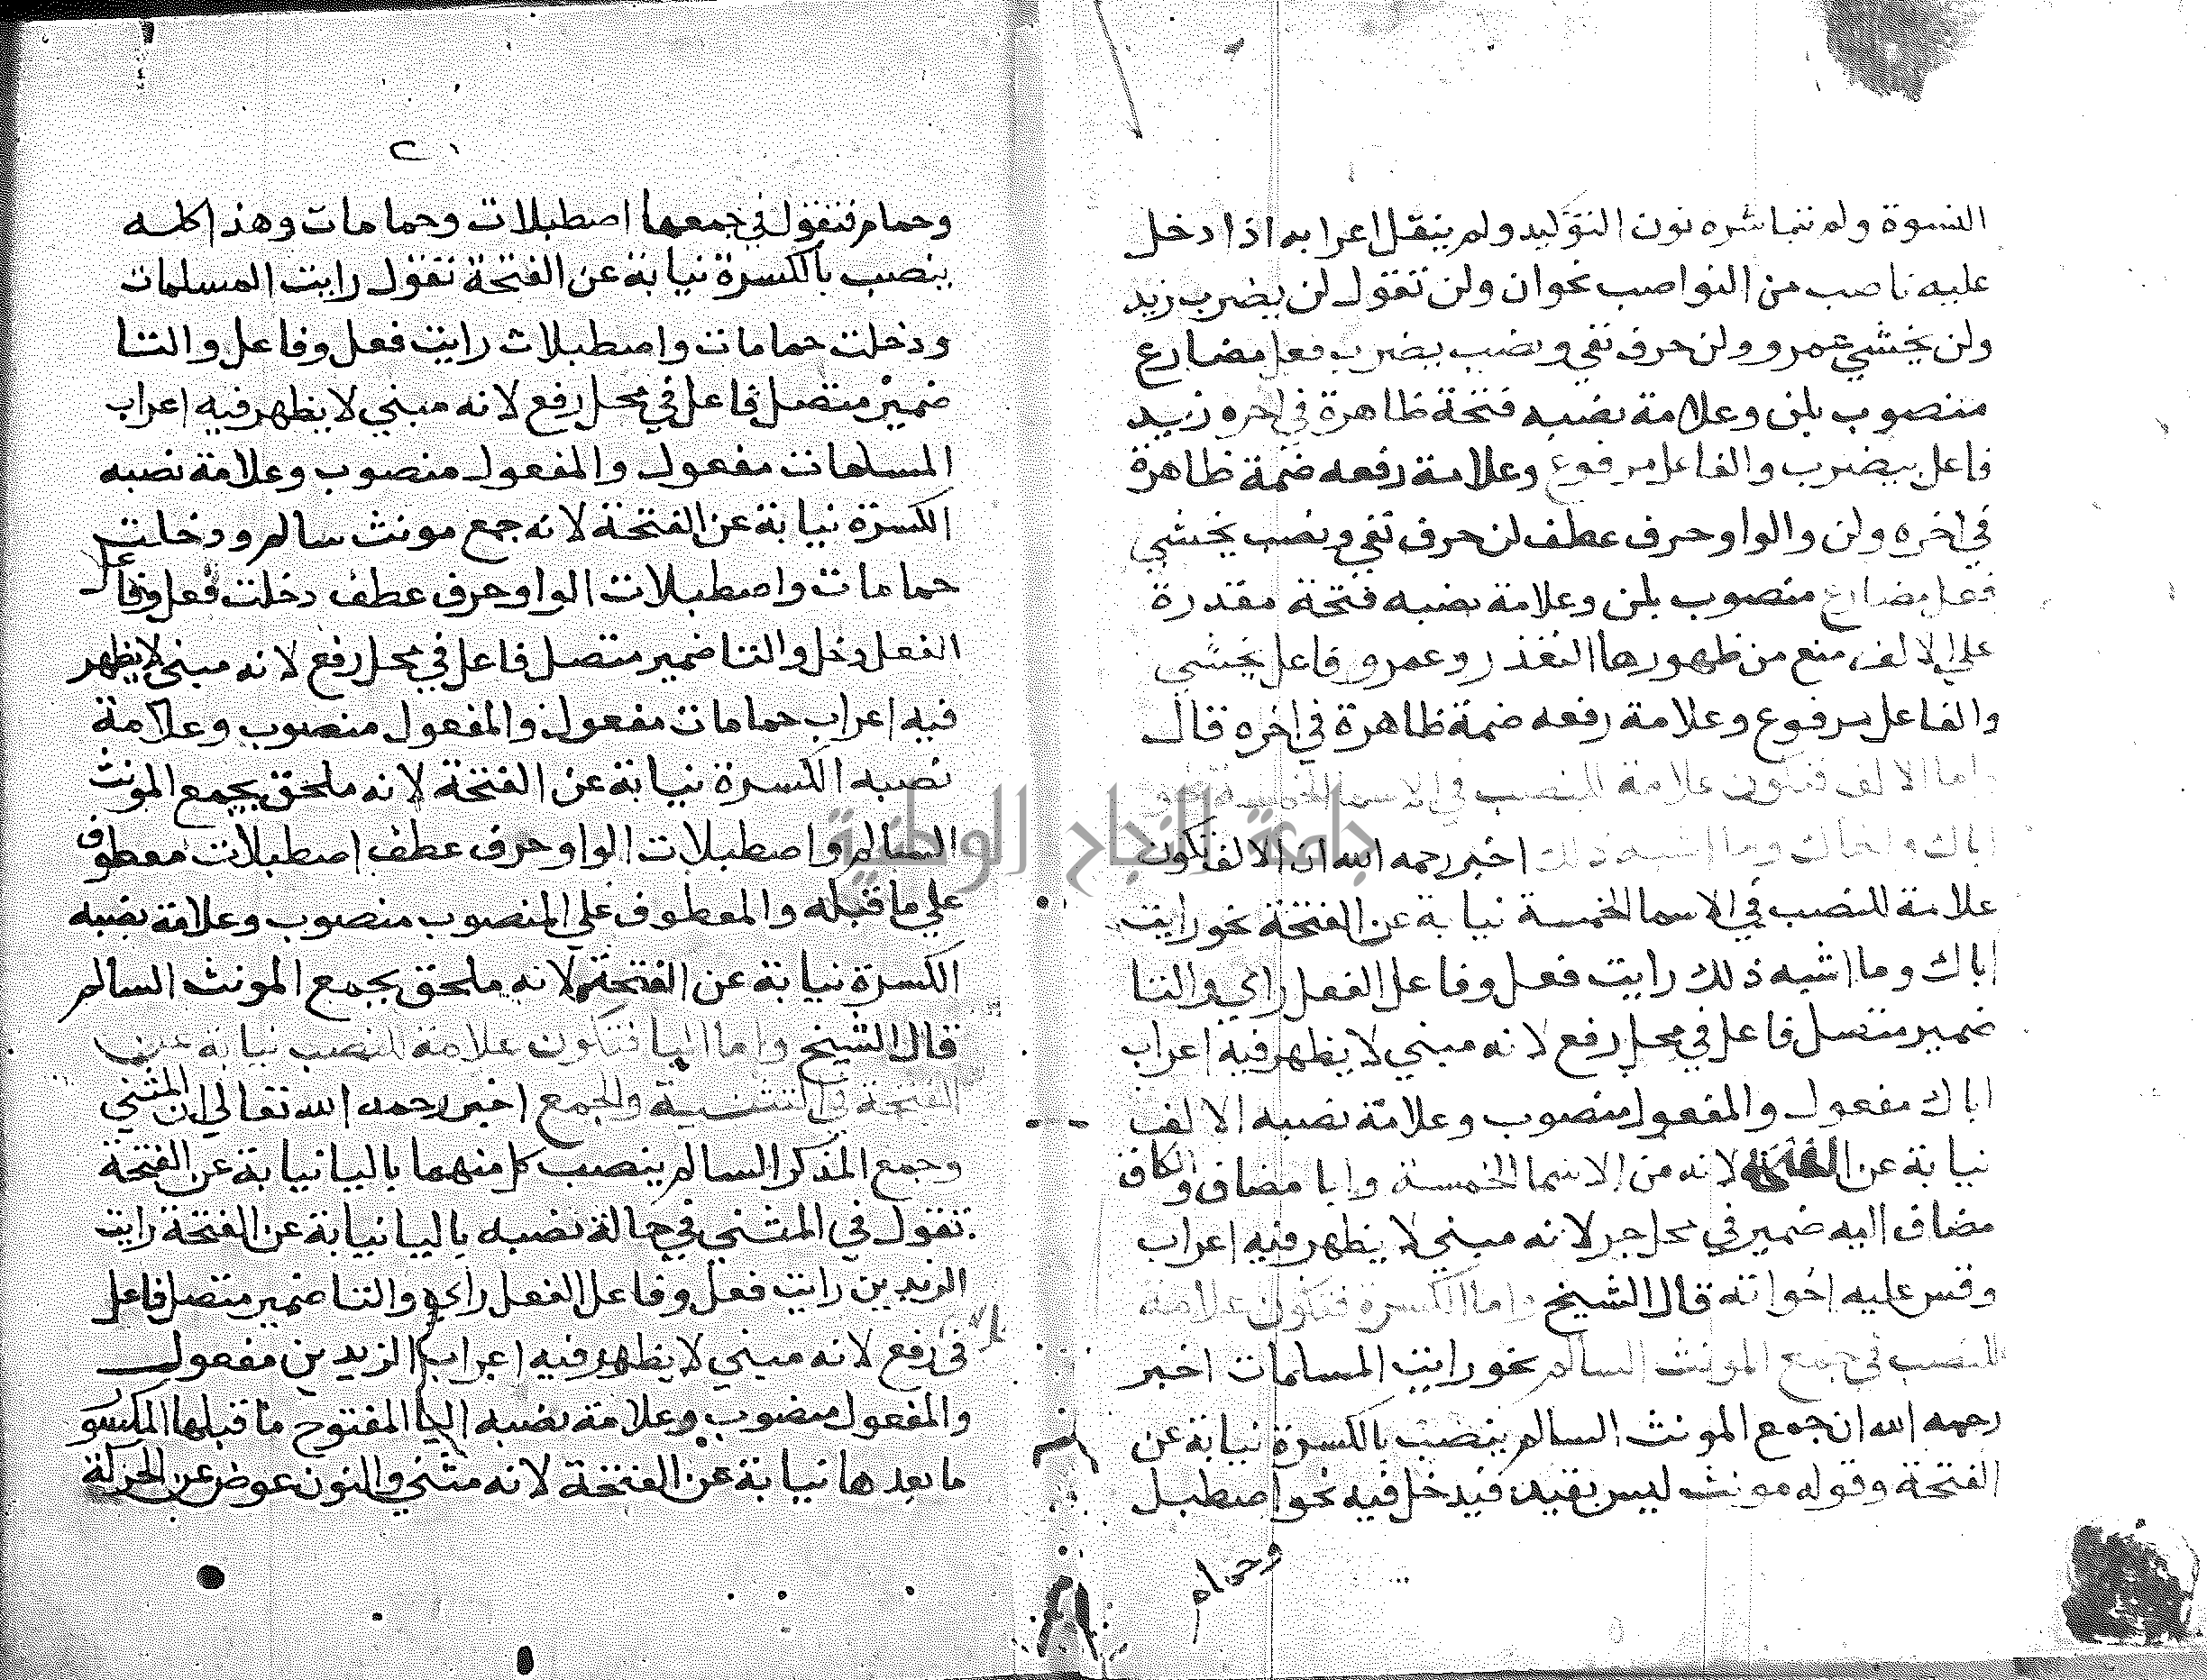 النسوة ولم تباشره نون التوكيد ولم ينقل اعرابه اذا دخل
عليه ناصب من النواصب نحو ان ولن تقول لن يضرب زيد
ولن يخشي عمرو ولن حرف نفي ونصب يضرب فعل مضارع
منصوب بلن وعلامة نصبه فتحة ظاهرة في اخره زيد
فاعل بيضرب والفاعل مرفوع وعلامة رفعه ضمة ظاهرة
في اخره ولن والواو حرف عطف لن حرف نفي ونصب يخشي
فعل مضارع منصوب بلن وعلامة نصبه فتحة مقدرة
علي الالف منع من ظهورها التعذر وعمرو فاعل يخشي
والفاعل مرفوع وعلامة رفعه ضمة ظاهرة في اخره قال
واما الالف فتكون علامة للنصب في الاسما الخمسة نحو
اباك واخاك وما اشبه ذلك اخبر رحمه الله ان الالف تكون
علامة للنصب في الاسما الخمسة نيابة عن الفتحة نحو رايت
اباك وما اشبه ذلك رايت فعل وفاعل الفعل راي والتا
ضمير متصل فاعل في محل رفع لانه مبني لا يظهر فيه اعراب
اباك مفعول والمفعول منصوب وعلامة نصبه الالف
نيابة عن الفتحة لانه من الاسما الخمسة وابا مضاف والكاف
مضاف اليه ضمير في محل جر لانه مبني لا يظهر فيه اعراب
وقس عليه اخواته قال الشيخ واما الكسرة فتكون علامة
للنصب في جمع المونث السالم نحو رايت المسلمات اخبر
رحمه الله ان جمع المونث السالم ينصب بالكسرة نيابة عن
الفتحة وقوله مونث ليس بقيد فيدخل فيه نحو اصطبل
وحمام
٢٠
وحمام فتقول في جمعها اصطبلات وحمامات وهذا كله
ينصب بالكسرة نيابة عن الفتحة تقول رايت المسلمات
ودخلت حمامات واصطبلات رايت فعل وفاعل والتا
ضمير متصل فاعل في محل رفع لانه مبني لا يظهر فيه اعراب
المسلمات مفعول والمفعول منصوب وعلامة نصبه
الكسرة نيابة عن الفتحة لانه جمع مونث سالم ودخلت
حمامات واصطبلات الواو حرف عطف دخلت فعل وفاعل
الفعل دخل والتا ضمير متصل فاعل في محل رفع لانه مبني لا يظهر
فيه اعراب حمامات مفعول والمفعول منصوب وعلامة
نصبه الكسرة نيابة عن الفتحة لانه ملحق بجمع المونث
السالم واصطبلات الواو حرف عطف اصطبلات معطوف
علي ما قبله والمعطوف علي المنصوب منصوب وعلامة نصبه
الكسرة نيابة عن الفتحة لانه ملحق بجمع المونث السالم
قال الشيخ واما اليا فتكون علامة للنصب نيابة عن
الفتحة في التثنية والجمع اخبر رحمه الله تعالي ان المثني
وجمع المذكر السالم ينصب كل منهما باليا نيابة عن الفتحة
تقول في المثني في حالة نصبه باليا نيابة عن الفتحة رايت
الزيدين رايت فعل وفاعل الفعل راي والتا ضمير متصل فاعل
في رفع لانه مبني لا يظهر فيه اعراب الزيدين مفعول
والمفعول منصوب وعلامة نصبه اليا المفتوح ما قبلها المكسو
ما بعدها نيابة عن الفتحة لانه مثني والنون عوض عن الحركة
جامعة النجاح الوطنية